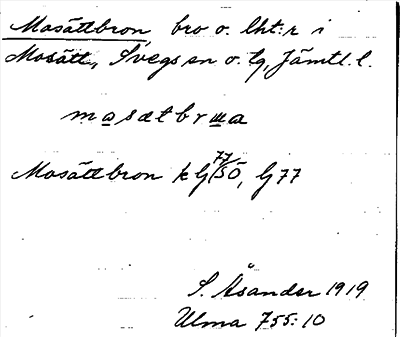 Mosättbron bro o. lht:r i
Mosätt, Svegs sn o. tg, Jämtl. l.
masætbrɯa
Mosättbron k lj 77/SÖ, lj 77
S. Åsander 1919
Ulma 755:10